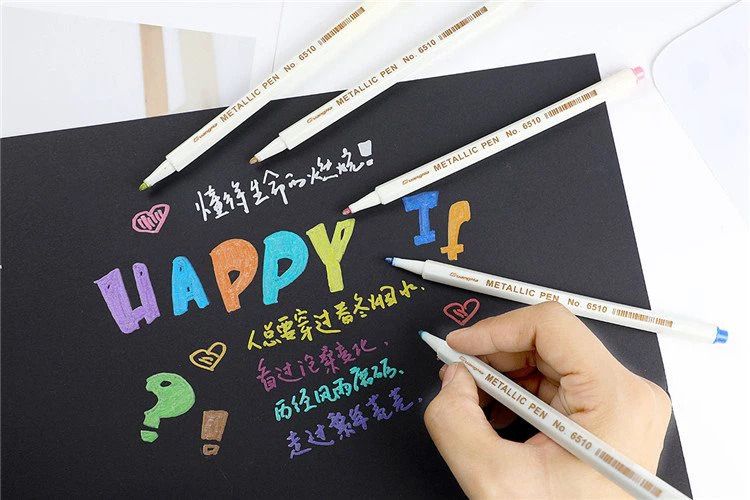 METALLIC PEN No. 6510
METALLIC PEN No. 6510
METALLIC PEN No. 6510
懂得生命的燃烧!
HAPPY If
METALLIC PEN No. 6510
人总要穿过
看过沧桑变化,
历经风雨磨砺,
走过繁华
METALLIC PEN No. 6510
?!